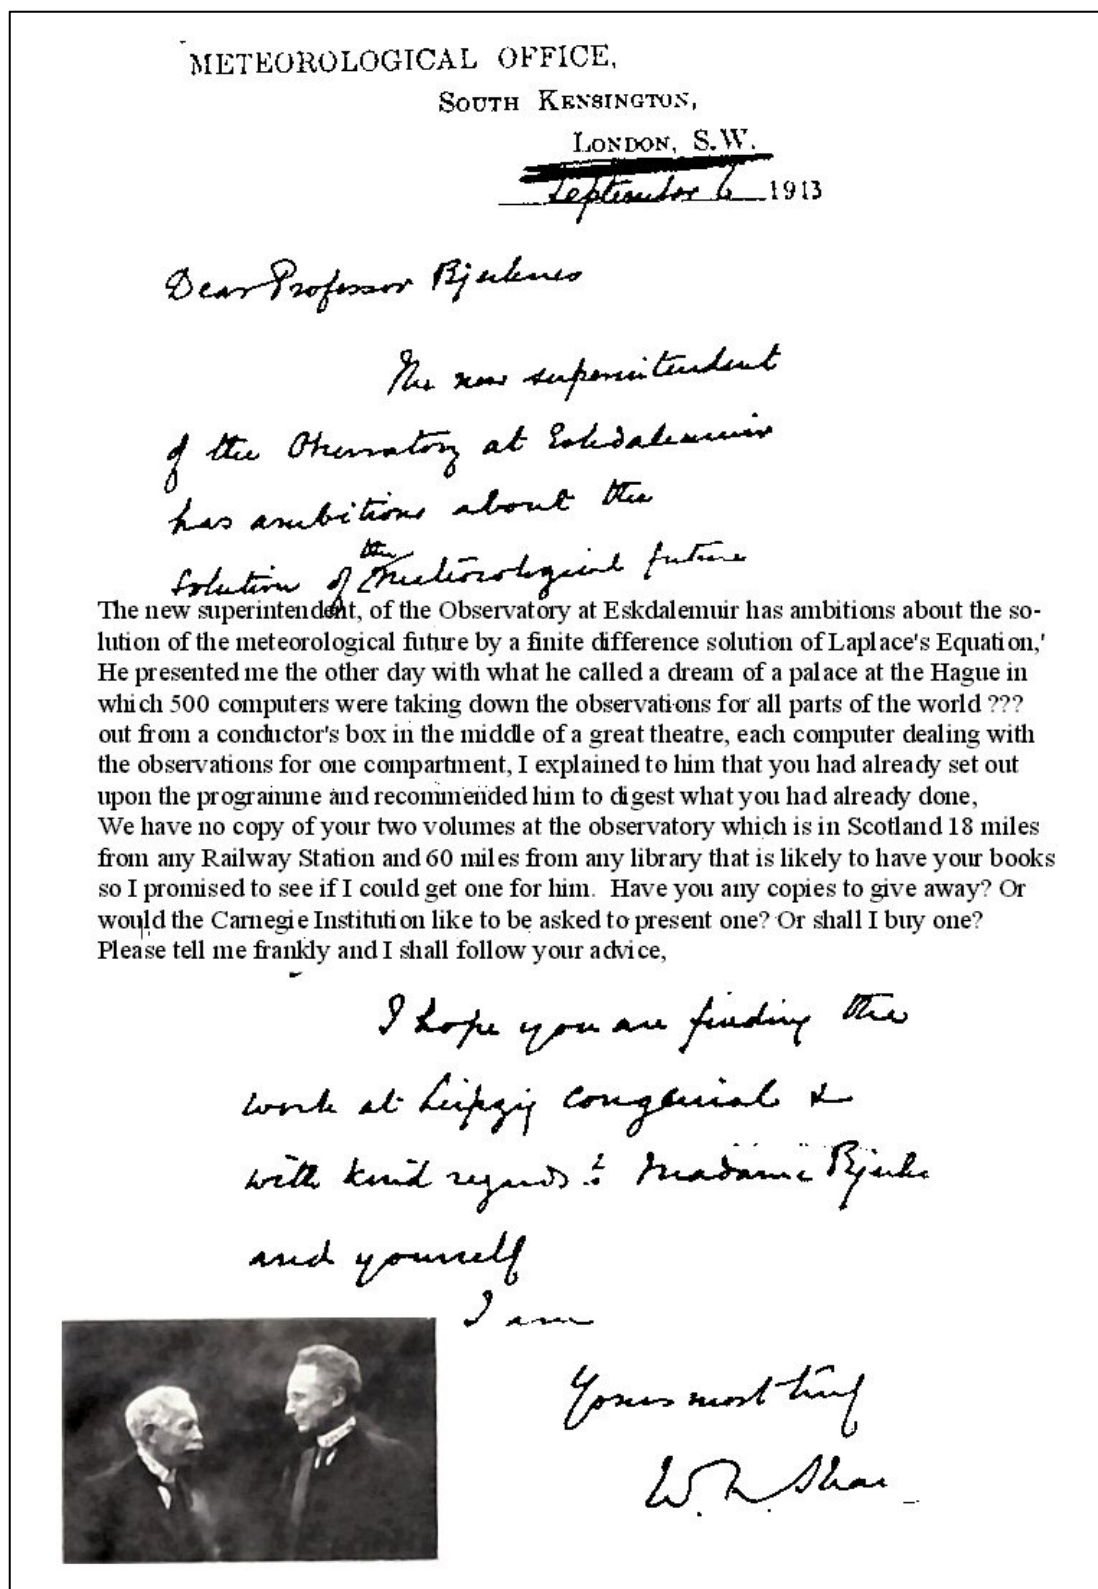 METEOROLOGICAL OFFICE,
SOUTH KENSINGTON,
LONDON, S.W.
September 6 1913
Dear Professor Bjerknes
The new superintendent
of the Observatory at Eskdalemuir
has ambitions about the
solution of the meteorological future
The new superintendent, of the Observatory at Eskdalemuir has ambitions about the so-
lution of the meteorological future by a finite difference solution of Laplace's Equation,'
He presented me the other day with what he called a dream of a palace at the Hague in
which 500 computers were taking down the observations for all parts of the world ???
out from a conductor's box in the middle of a great theatre, each computer dealing with
the observations for one compartment, I explained to him that you had already set out
upon the programme and recommended him to digest what you had already done,
We have no copy of your two volumes at the observatory which is in Scotland 18 miles
from any Railway Station and 60 miles from any library that is likely to have your books
so I promised to see if I could get one for him. Have you any copies to give away? Or
would the Carnegie Institution like to be asked to present one? Or shall I buy one?
Please tell me frankly and I shall follow your advice,
I hope you are finding the
work at Leipzig congenial &
with kind regards to Madame Bjerk
and yourself
I am
Yours most truly
W. N. Shaw